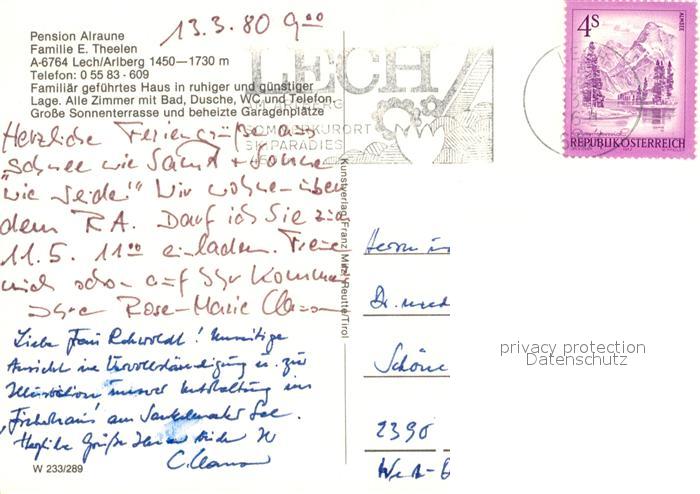 13.3.80 9⁰⁰
Pension Alraune
Familie E. Theelen
A-6764 Lech/Arlberg 1450—1730 m
Telefon: 0 55 83 - 609
Familiär geführtes Haus in ruhiger und günstiger
Lage. Alle Zimmer mit Bad, Dusche, WC und Telefon.
Große Sonnenterrasse und beheizte Garagenplätze
LECH
SOMMERKURORT
SKIPARADIES
4S
ALMSEE
REPUBLIK ÖSTERREICH
Herzliche Feriengrüße aus
"Schnee wie Samt + Sonne
wie Seide!" Wir wohnen über
dem RA. Darf ich Sie zum
11.5. 11⁰⁰ einladen. Freue
mich schon auf Ihr Kommen
Ihre Rose-Marie
Liebe Frau
Ansicht zur Vervollständigung u. zur
Illustration unserer
Fischerhaus am See.
Herzliche Grüße Ihnen beiden Ihr
C.
W 233/289
Kunstverlag Franz Milz Reutte/Tirol
Herrn
Dr. med
Schöne
2390
West-
privacy protection
Datenschutz